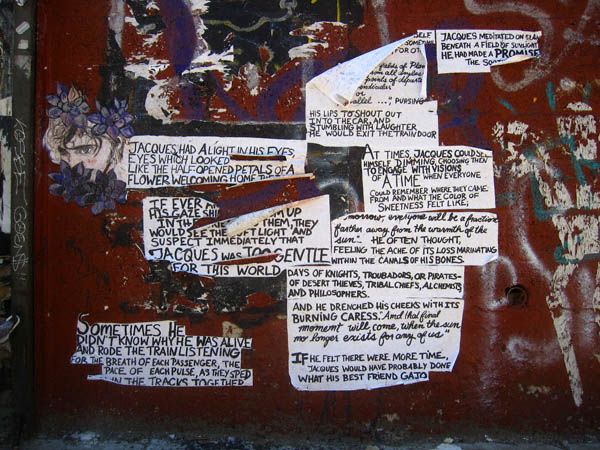 JACQUES MEDITATED ON
BENEATH A FIELD OF SUNLIGHT
HE HAD MADE A PROMISE
THE
FOR
fields of
from all angles
points of
"
HIS LIPS TO SHOUT OUT
INTO THE CAR, AND
STUMBLING WITH LAUGHTER
HE WOULD EXIT THE TRAIN DOOR
JACQUES, HAD A LIGHT IN HIS EYES
EYES WHICH LOOKED
LIKE THE HALF-OPENED PETALS OF A
FLOWER WELCOMING HOME THE
AT TIMES, JACQUES COULD
HIMSELF DIMMING CHOOSING THEN
TO ENGAGE WITH VISIONS
OF A TIME WHEN EVERYONE
COULD REMEMBER WHERE THEY CAME
FROM AND WHAT THE COLOR OF
SWEETNESS FELT LIKE.
IF EVER
HIS GAZE UP
IN THEM, THEY
WOULD SEE LIGHT AND
SUSPECT IMMEDIATELY THAT
JACQUES WAS TOO GENTLE
FOR THIS WORLD
tomorrow, everyone will be a fraction
farther away from the warmth of the
sun." HE OFTEN THOUGHT,
FEELING THE ACHE OF ITS LOSS MARINATING
WITHIN THE CANALS OF HIS BONES.
DAYS OF KNIGHTS, TROUBADORS, OR PIRATES-
OF DESERT THIEVES, TRIBAL CHIEFS, ALCHEMISTS
AND PHILOSOPHERS.
AND HE DRENCHED HIS CHEEKS WITH ITS
BURNING CARESS. "And that final
moment will come, when the sun
no longer exists for any of us"
IF HE FELT THERE WERE MORE TIME,
JACQUES WOULD HAVE PROBABLY DONE
WHAT HIS BEST FRIEND GAJO
SOMETIMES HE
DIDN'T KNOW WHY HE WAS ALIVE
AND RODE THE TRAIN LISTENING
FOR THE BREATH OF EACH PASSENGER, THE
PACE OF EACH PULSE, AS THEY SPED
IN THE TRACKS TOGETHER